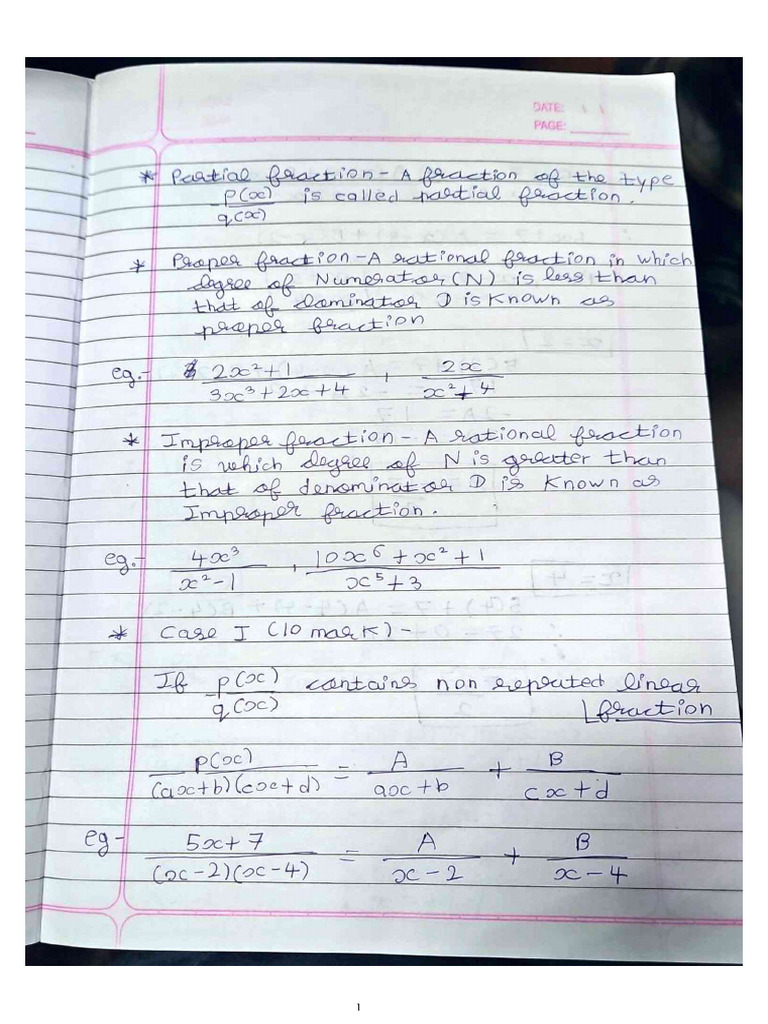 DATE:
PAGE:
* Partial fraction - A fraction of the type
p(x)/q(x) is called partial fraction.
* Proper fraction - A rational fraction in which
degree of Numerator (N) is less than
that of dominator D is known as
proper fraction
eg.- 2x²+1/3x³+2x+4 , 2x/x²+4
* Improper fraction - A rational fraction
is which degree of N is greater than
that of denominator D is known as
Improper fraction.
eg.- 4x³/x²-1 , 10x⁶+x²+1/x⁵+3
* Case I (10 mark) -
If p(x)/q(x) contains non repeated linear
fraction
p(x)/(ax+b)(cx+d) = A/ax+b + B/cx+d
eg- 5x+7/(x-2)(x-4) = A/x-2 + B/x-4
1